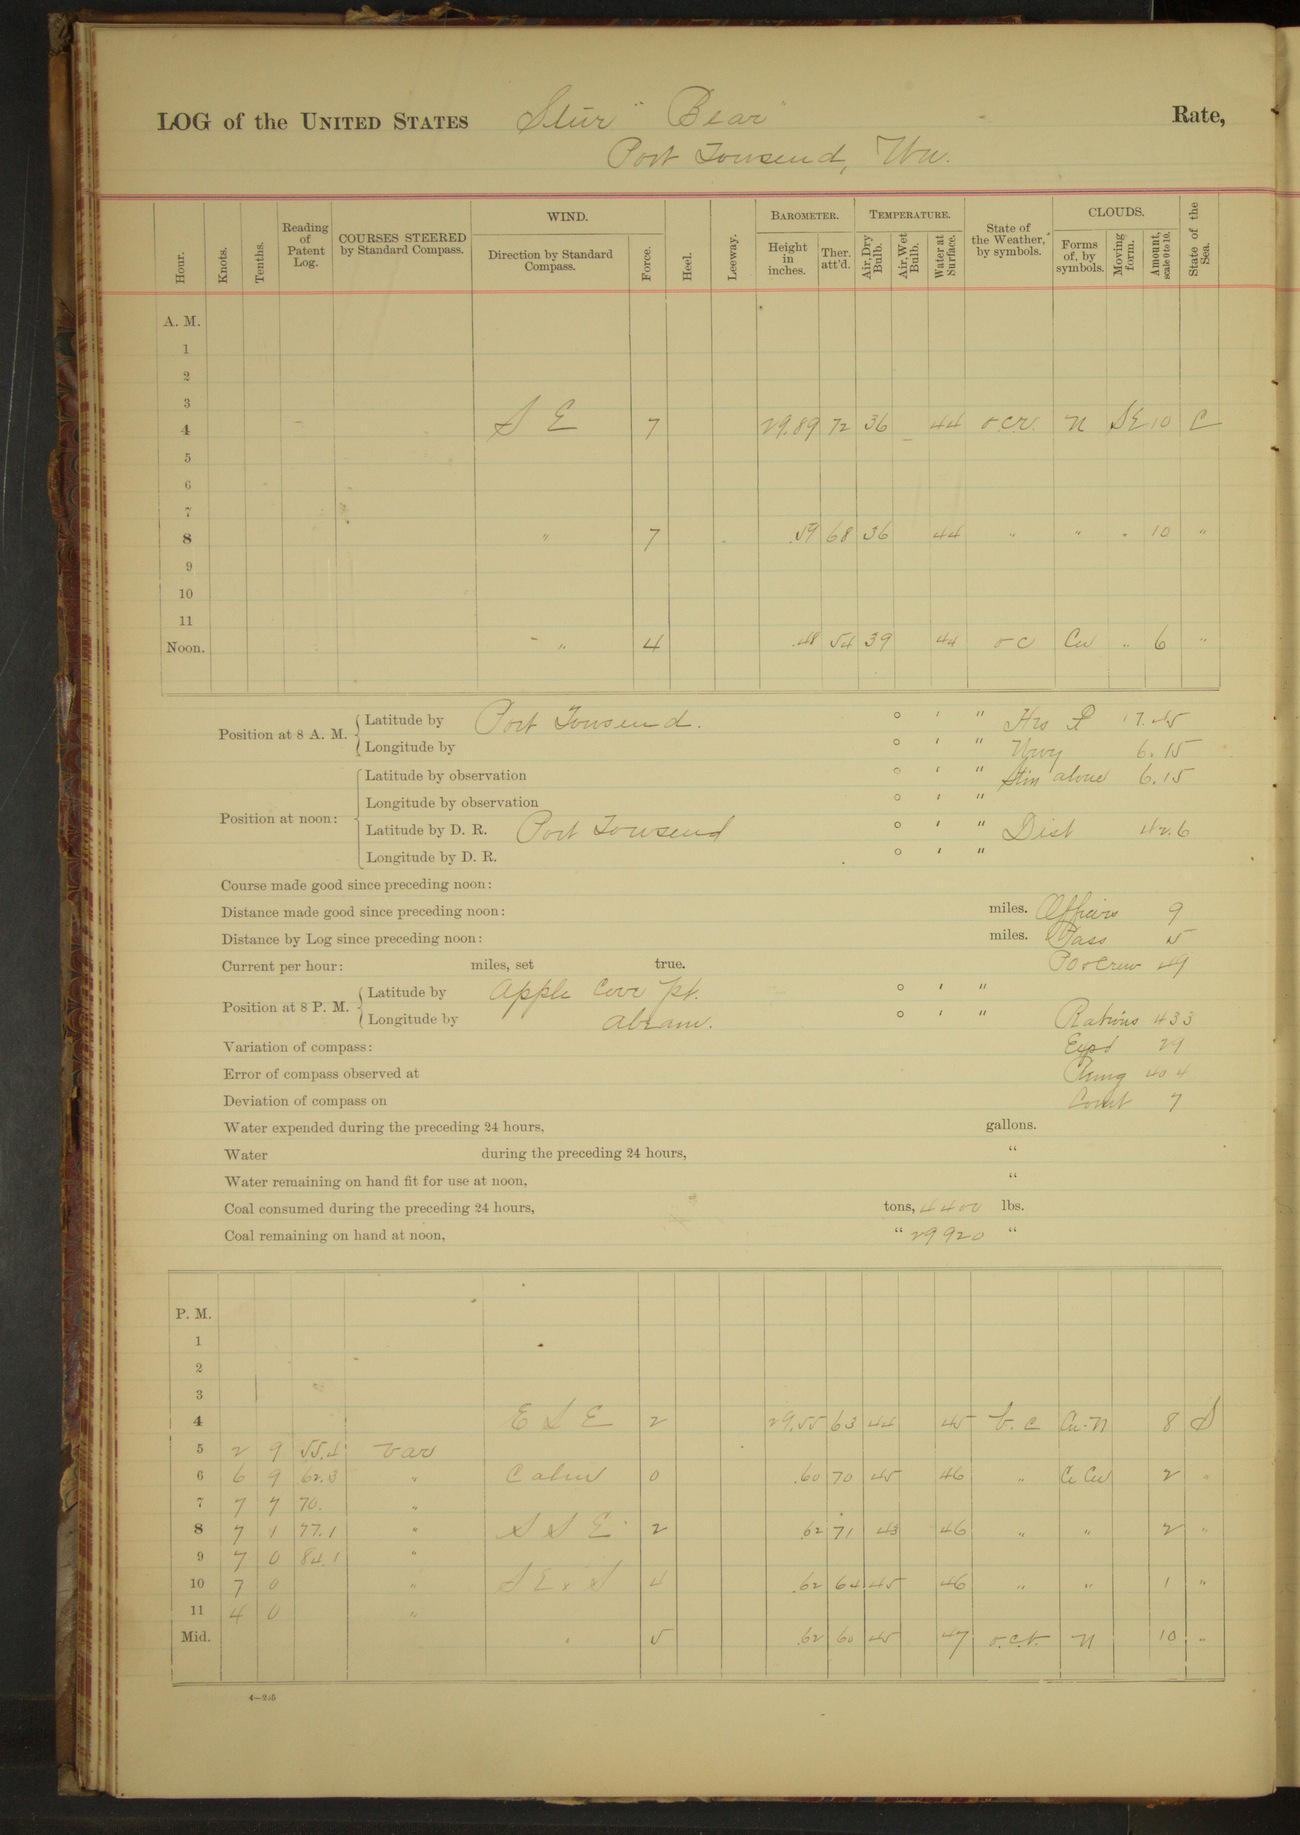 LOG of the UNITED STATES Stmr "Bear" Rate,
Port Townsend, Wn.
Hour. Knots. Tenths. Reading of Patent Log. COURSES STEERED by Standard Compass. WIND. Direction by Standard Compass. Force. Heel. Leeway. BAROMETER. Height in inches. Ther. att'd. TEMPERATURE. Air, Dry Bulb. Air, Wet Bulb. Water at Surface. State of the Weather, by symbols. CLOUDS. Forms of, by symbols. Moving form. Amount, scale 0 to 10. State of the Sea.
A. M.
1
2
3
4 S E 7 29.89 72 36 44 o.c.r. N SE 10 C
5
6
7
8 " 7 .59 68 36 44 " " " 10 "
9
10
11
Noon. " 4 .48 54 39 44 o c Cu " 6 "
Position at 8 A. M. Latitude by Port Townsend. ° ' " Hrs P 17.45
Longitude by ° ' " 6.15
Position at noon: Latitude by observation ° ' " Stm alone 6.15
Longitude by observation ° ' "
Latitude by D. R. Port Townsend ° ' " Dist 42.6
Longitude by D. R. ° ' "
Course made good since preceding noon:
Distance made good since preceding noon: miles. Officers 9
Distance by Log since preceding noon: miles. Pass 5
Current per hour: miles, set true. PO & Crew 49
Position at 8 P. M. Latitude by Apple Cove Pt. ° ' "
Longitude by abeam. ° ' " Rations 433
Variation of compass: Expd 29
Error of compass observed at Rmng 404
Deviation of compass on Comt 7
Water expended during the preceding 24 hours, gallons.
Water during the preceding 24 hours, "
Water remaining on hand fit for use at noon, "
Coal consumed during the preceding 24 hours, tons, 4400 lbs.
Coal remaining on hand at noon, " 29920 "
P. M.
1
2
3
4 E S E 2 29.55 63 44 45 b.c Cu-N 8 S
5 2 9 55.4 Var
6 6 9 62.3 " Calm 0 .60 70 45 46 " Ci Cu 2 "
7 7 7 70. "
8 7 1 77.1 " S S E 2 .62 71 43 46 " " 2 "
9 7 0 84.1 "
10 7 0 " S E x S 4 .62 64 45 46 " " 1 "
11 4 0 "
Mid. " 5 .62 60 45 47 o.c.r. N 10 "